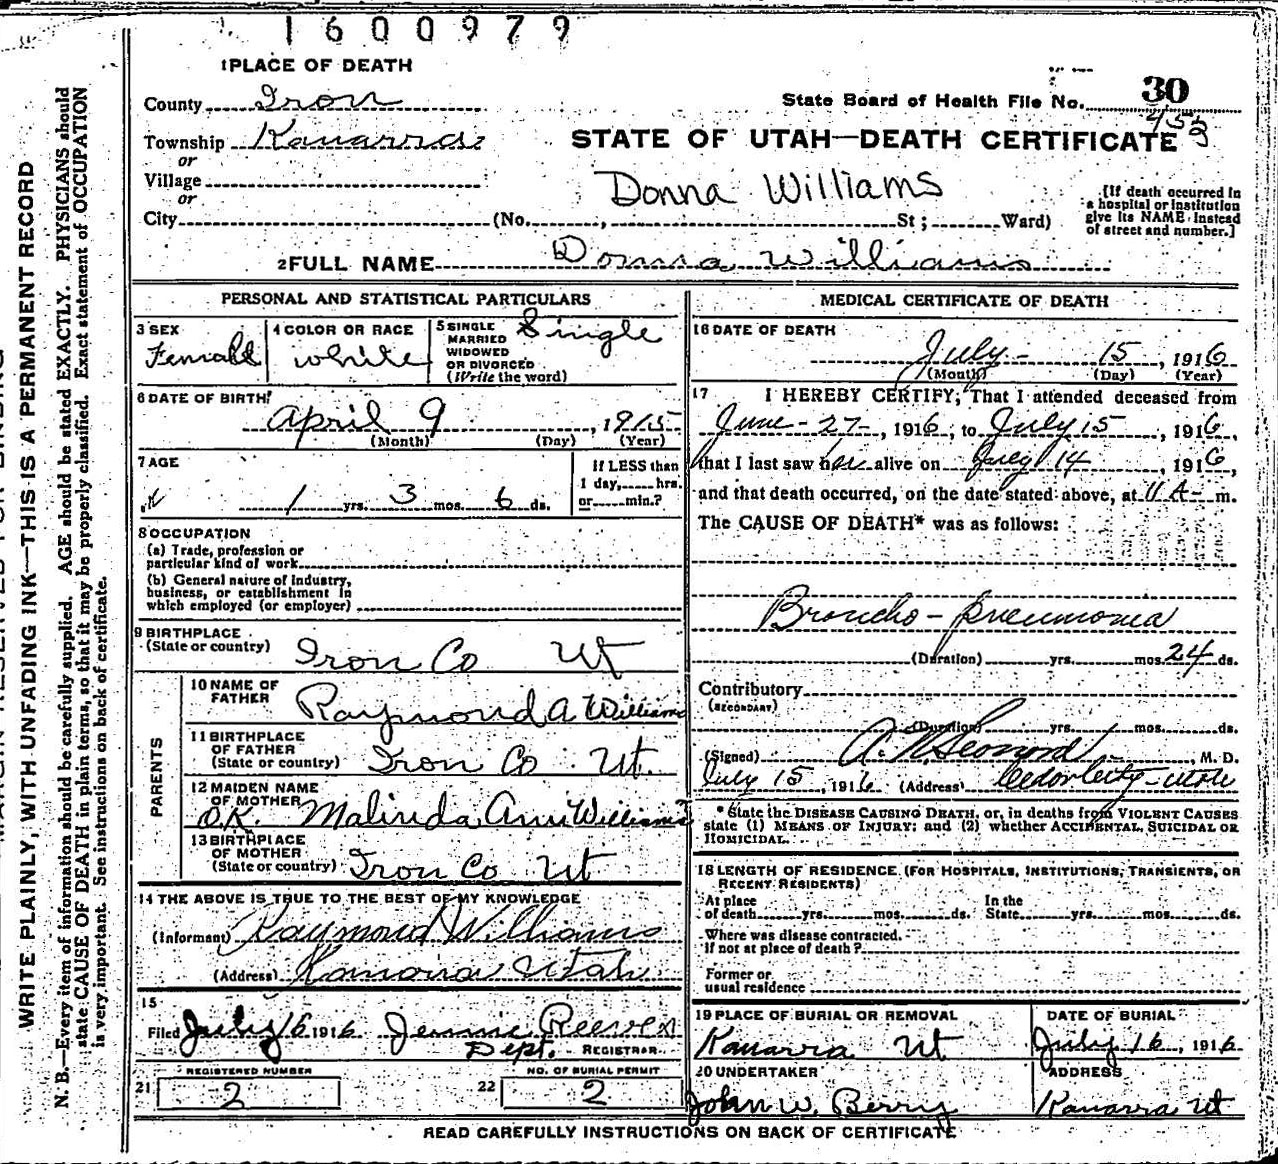 1600979
1 PLACE OF DEATH
County Iron
State Board of Health File No. 30
453
Township Kanarra
STATE OF UTAH—DEATH CERTIFICATE
or
Village
or
Donna Williams
City (No. , St ; Ward)
[If death occurred in
a hospital or institution
give its NAME instead
of street and number.]
2 FULL NAME Donna Williams
PERSONAL AND STATISTICAL PARTICULARS
3 SEX Female
4 COLOR OR RACE white
5 SINGLE
MARRIED
WIDOWED
OR DIVORCED
(Write the word)
Single
6 DATE OF BIRTH
April 9, 1915
(Month) (Day) (Year)
7 AGE
1 yrs. 3 mos. 6 ds.
If LESS than
1 day, hrs.
or min.?
8 OCCUPATION
(a) Trade, profession or
particular kind of work
(b) General nature of industry,
business, or establishment in
which employed (or employer)
9 BIRTHPLACE
(State or country) Iron Co Ut
PARENTS
10 NAME OF
FATHER Raymond A Williams
11 BIRTHPLACE
OF FATHER
(State or country) Iron Co. Ut.
12 MAIDEN NAME
OF MOTHER
O.K. Malinda Ann Williams
13 BIRTHPLACE
OF MOTHER
(State or country) Iron Co Ut
14 THE ABOVE IS TRUE TO THE BEST OF MY KNOWLEDGE
(Informant) Raymond Williams
(Address) Kanarra Utah
15
Filed July 16 1916 Jennie Reeves
Dept. REGISTRAR
REGISTERED NUMBER
21 2
NO. OF BURIAL PERMIT
22 2
MEDICAL CERTIFICATE OF DEATH
16 DATE OF DEATH
July 15, 1916
(Month) (Day) (Year)
17 I HEREBY CERTIFY, That I attended deceased from
June-27-, 1916, to July 15, 1916,
that I last saw her alive on July 14, 1916,
and that death occurred, on the date stated above, at 11 A- m.
The CAUSE OF DEATH* was as follows:
Broncho-pneumonia
(Duration) yrs. mos. 24 ds.
Contributory
(SECONDARY)
(Duration) yrs. mos. ds.
(Signed) A. N. Leonard, M. D.
July 15, 1916 (Address) Cedar City-Utah
* State the DISEASE CAUSING DEATH, or, in deaths from VIOLENT CAUSES
state (1) MEANS OF INJURY; and (2) whether ACCIDENTAL, SUICIDAL OR
HOMICIDAL.
18 LENGTH OF RESIDENCE (FOR HOSPITALS, INSTITUTIONS, TRANSIENTS, OR
RECENT RESIDENTS)
At place
of death yrs. mos. ds.
In the
State yrs. mos. ds.
Where was disease contracted.
If not at place of death?
Former or
usual residence
19 PLACE OF BURIAL OR REMOVAL
Kanarra Ut
DATE OF BURIAL
July 16, 1916
20 UNDERTAKER
John W. Berry
ADDRESS
Kanarra Ut
READ CAREFULLY INSTRUCTIONS ON BACK OF CERTIFICATE
WRITE PLAINLY, WITH UNFADING INK—THIS IS A PERMANENT RECORD
N. B.—Every item of information should be carefully supplied. AGE should be stated EXACTLY. PHYSICIANS should
state CAUSE OF DEATH in plain terms, so that it may be properly classified. Exact statement of OCCUPATION
is very important. See instructions on back of certificate.